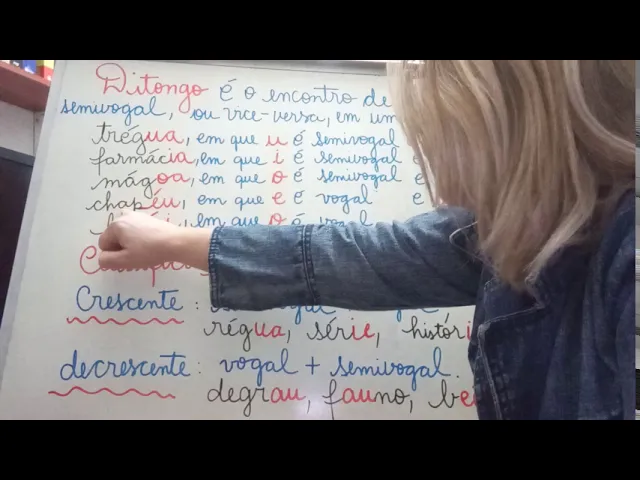 Ditongo é o encontro de
semivogal, ou vice-versa, em um
trégua, em que u é semivogal
farmácia, em que i é semivogal e
mágoa, em que o é semivogal e
chapéu, em que e é vogal e
em que o é vogal
Crescente :
régua, série,
decrescente: vogal + semivogal.
degrau, fauno,